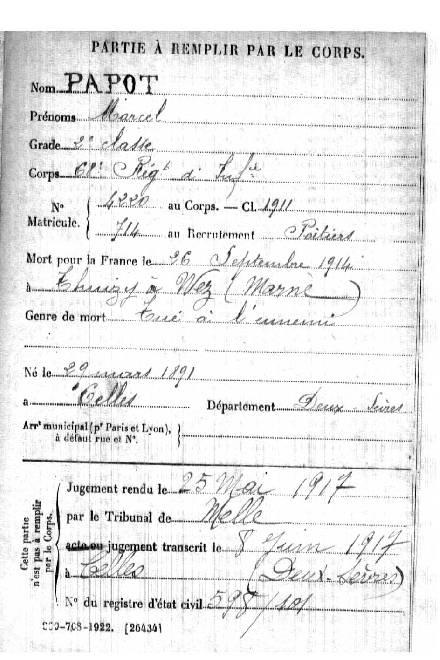 PARTIE À REMPLIR PAR LE CORPS.
Nom PAPOT
Prénoms Marcel
Grade 2e classe
Corps 68e Régt d'Infie
N° Matricule. { 4220 au Corps. — Cl. 1911
714 au Recrutement Poitiers
Mort pour la France le 26 Septembre 1914
à Thuizy à Wez (Marne)
Genre de mort Tué à l'ennemi
Né le 29 mars 1891
à Celles Département Deux-Sèvres
Arrt municipal (pr Paris et Lyon), à défaut rue et N°.
Cette partie n'est pas à remplir par le Corps.
Jugement rendu le 25 Mai 1917
par le Tribunal de Melle
acte ou jugement transcrit le 8 Juin 1917
à Celles (Deux-Sèvres)
N° du registre d'état civil 598/101
-708-1922. [26434]